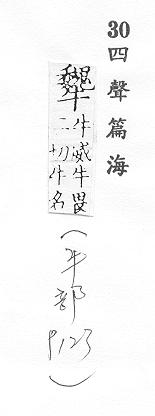 30四聲篇海
犩
牛威牛畏
二切牛名
(牛部
P123)